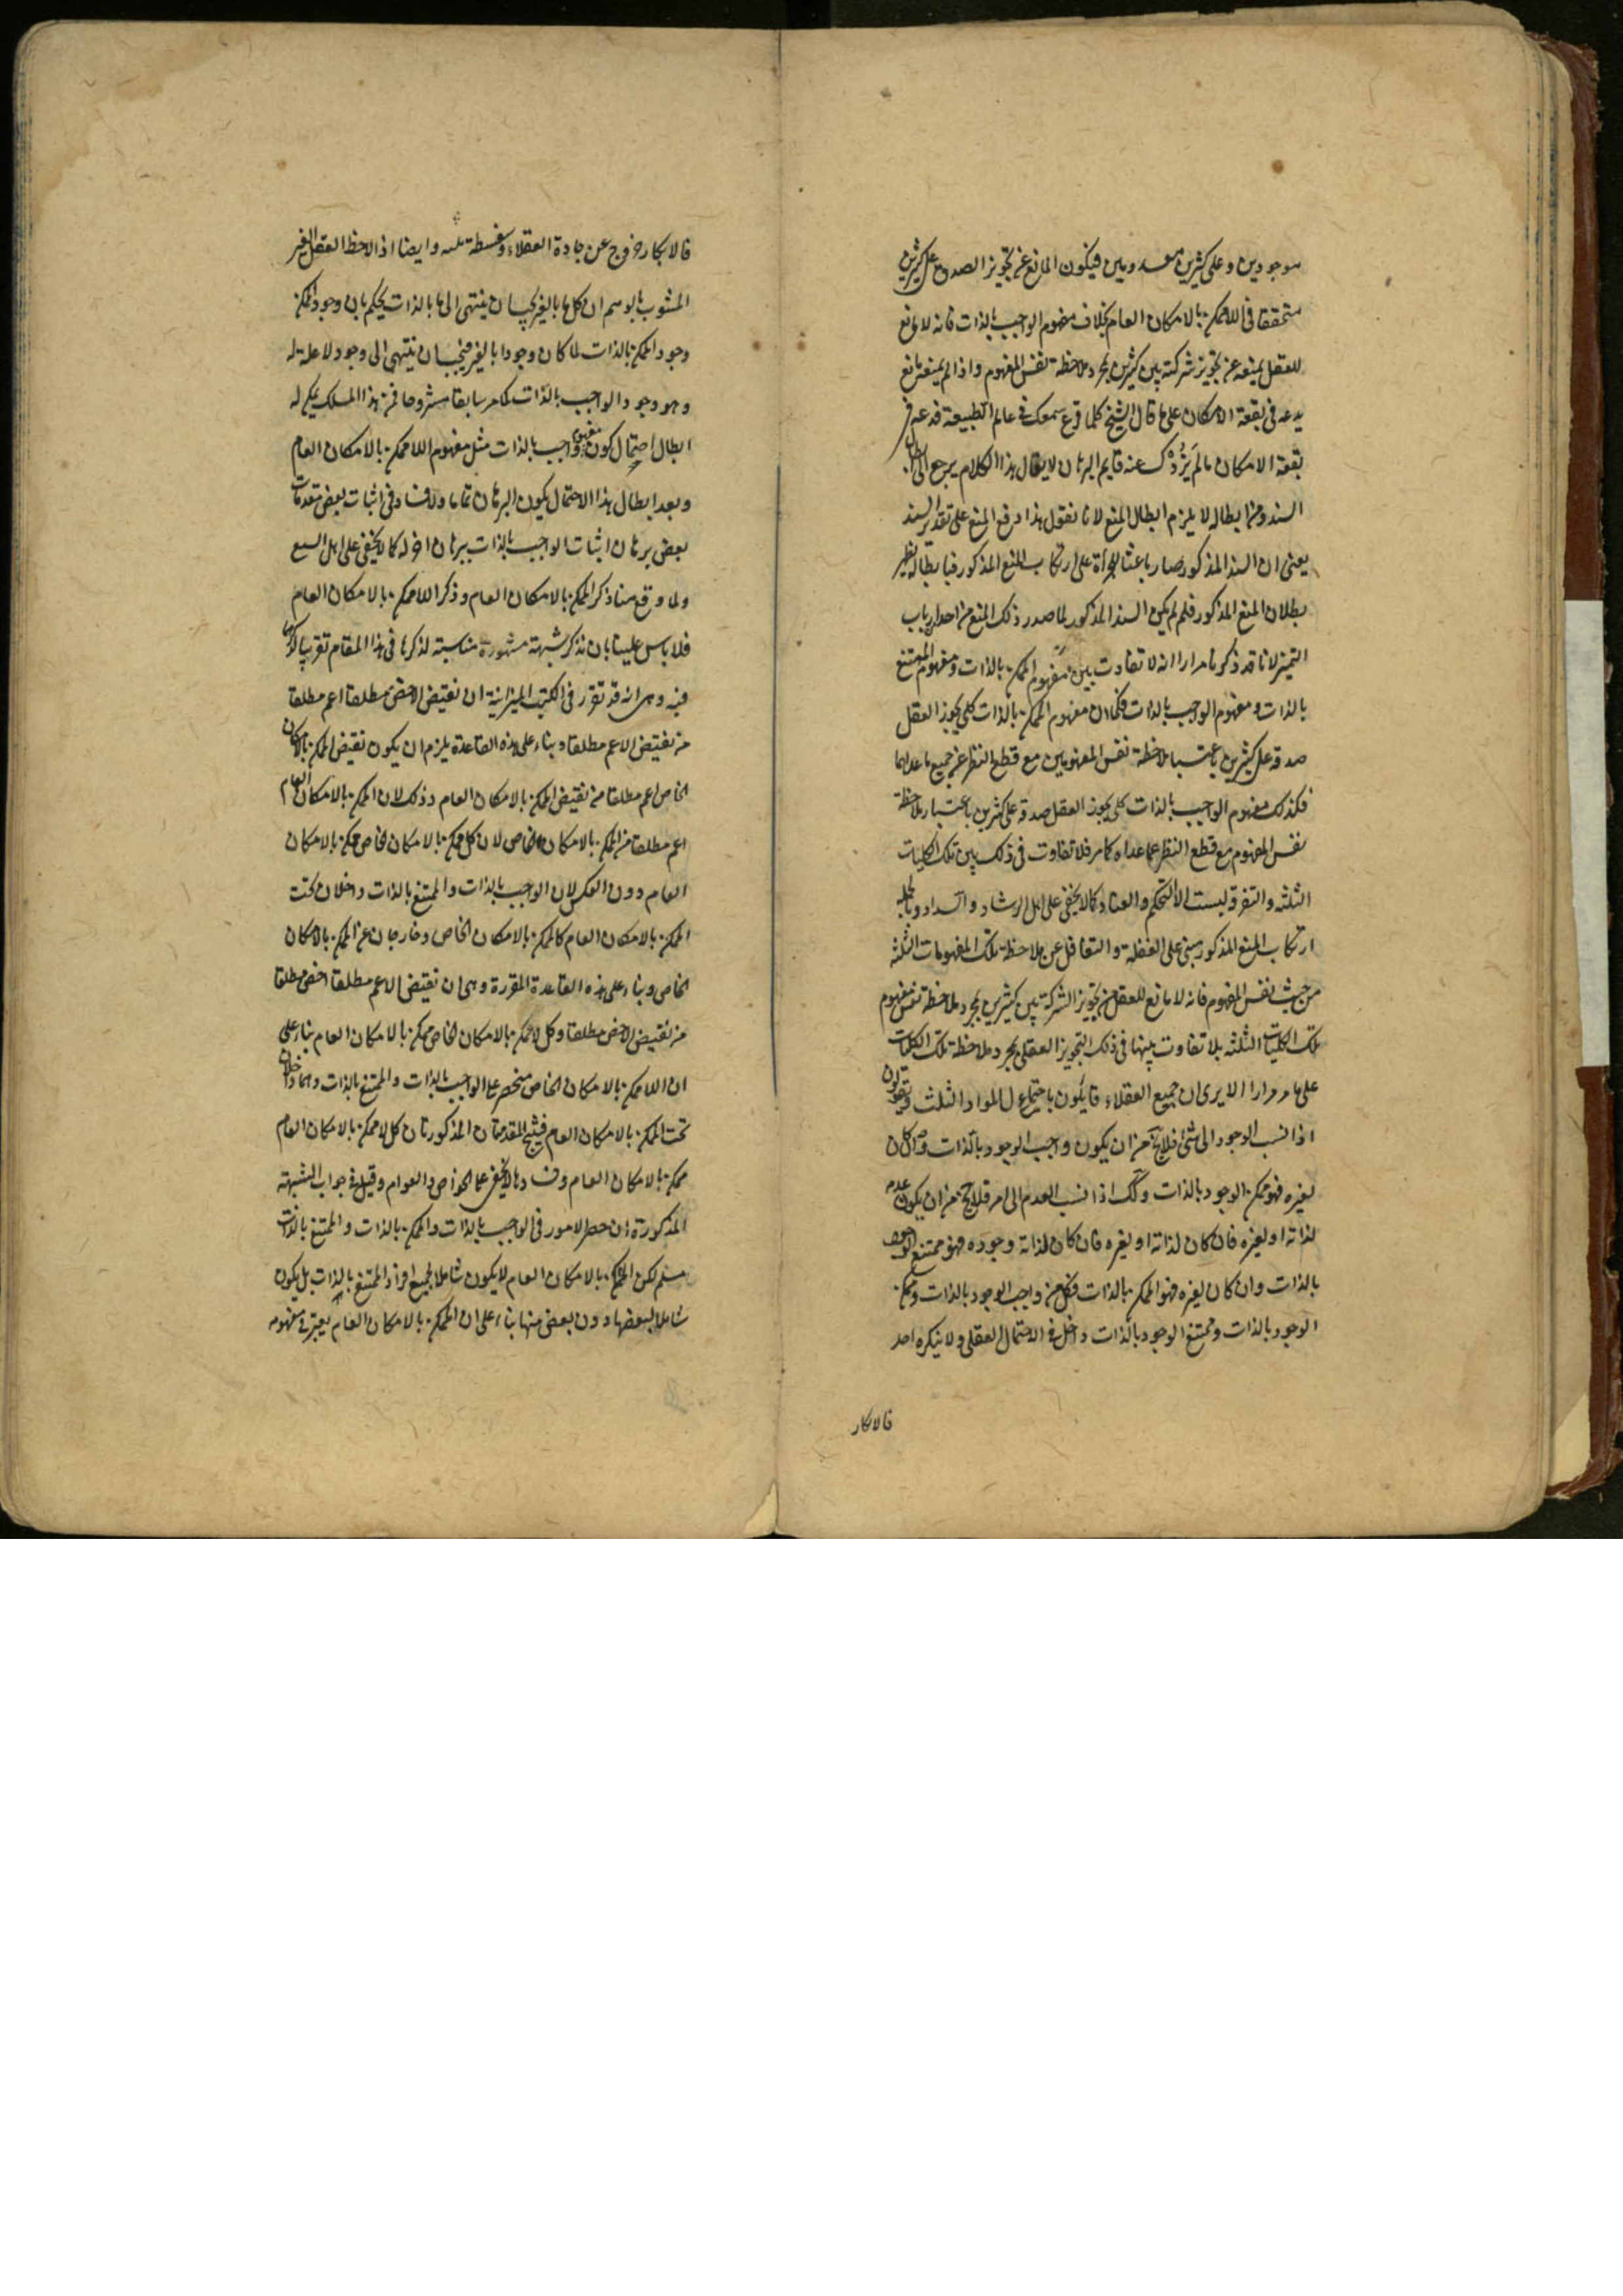 موجودين وعلى كثيرين معدومين فيكون المانع عن تجويز الصدق على كثيرين
متحققا فى اللاممكن بالامكان العام بخلاف مفهوم الواجب بالذات فانه لا مانع
للعقل يمنعه عن تجويز شركته بين كثيرين بمجرد ملاحظة نفس المفهوم واذا لم يمنعه مانع
يدعه فى بقعة الامكان على ما قال الشيخ كلما قرع سمعك فى عالم الطبيعة فدعه فى
بقعة الامكان ما لم يزدك عنه قايم البرهان لا يقال هذا الكلام يرجع الى ابطال
السند ومن ابطاله لا يلزم ابطال المنع لانا نقول هذا دفع المنع على تقدير السند
يعنى ان السند المذكور صار باعثا لجرأة على ارتكاب المنع المذكور فبابطاله يظهر
بطلان المنع المذكور فلم لم يكن السند المذكور لما صدر ذلك المنع من احد ارباب
التميز لانا قد ذكرنا مرارا انه لا تفاوت بين مفهوم الممكن بالذات ومفهوم الممتنع
بالذات ومفهوم الواجب بالذات فكما ان مفهوم الممكن بالذات كلى يجوز العقل
صدقه على كثيرين باعتبار ملاحظة نفس المفهومين مع قطع النظر عن جميع ما عداهما
فكذلك مفهوم الواجب بالذات كلى يجوز العقل صدقه على كثرين باعتبار ملاحظة
نفس المفهوم مع قطع النظر عما عداه كما مر فلا تفاوت فى ذلك بين تلك الكليات
الثلثه والتفرقة ليست الا التحكم والعناد كما لا يخفى على اهل الرشاد والسداد وبالجمله
ارتكاب المنع المذكور مبنى على الغفلة والتغافل عن ملاحظة تلك المفهومات الثلثه
من حيث نفس المفهوم فانه لا مانع للعقل من تجويز الشركة بين كثيرين بمجرد ملاحظة نفس مفهوم
تلك الكليات الثلثه بلا تفاوت بينها فى ذلك التجويز العقلى بمجرد ملاحظة تلك الكليات
على ما مر مرارا الا يرى ان جميع العقلاء قايلون باجتماع المواد الثلث ويقولون
اذا نسب الوجود الى شئ فلا يخ من ان يكون واجب الوجود بالذات وان كان
لغيره فهو ممكن الوجود بالذات وكك اذا نسب العدم الى امر فلا يخ من ان يكون عدمه
لذاته او لغيره فان كان لذاته او لغيره فان كان لذاته وجوده فهو ممتنع الوجود
بالذات وان كان لغيره فهو الممكن بالذات فكل من واجب الوجود بالذات وممكن
الوجود بالذات وممتنع الوجود بالذات داخل فى الاحتمال العقلى ولا ينكره احد
فالانكار
فالانكار خروج عن جادة العقلاء وسفسطة منه وايضا اذا لاحظ العقل الغير
المشوب بالوهم ان كل ما بالغير يجب ان ينتهى الى ما بالذات يحكم بان وجود الممكن
وجود الممكن بالذات لما كان وجودا بالغير فيجب ان ينتهى الى وجود لا علة له
وهو وجود الواجب بالذات كما مر سابقا مشروحا فمن هذا المسلك يمكن له
ابطال احتمال كون مفهوم واجب بالذات مثل مفهوم اللاممكن بالامكان العام
وبعد ابطال هذا الاحتمال يكون البرهان تماما ولا فساد فى اثبات بعض مقدمات
بعض برهان اثبات الواجب بالذات ببرهان اخر له كما لا يخفى على اهل السمع
ولما وقع هنا ذكر الممكن بالامكان العام وذكر اللاممكن بالامكان العام
فلا باس علينا بان نذكر شبهة مشهورة مناسبته لذكرها فى هذا المقام تقريبا لذكرها
فيه وهى انه قد تقرر فى الكتب الميزانية ان نقيض الاخص مطلقا اعم مطلقا
من نقيض الاعم مطلقا وبناء على هذه القاعدة يلزم ان يكون نقيض الممكن بالامكان
الخاص اعم مطلقا من نقيض الممكن بالامكان العام وذلك لان الممكن بالامكان العام
اعم مطلقا من الممكن بالامكان الخاص لان كل ممكن بالامكان الخاص ممكن بالامكان
العام دون العكس لان الواجب بالذات والممتنع بالذات داخلان تحت
الممكن بالامكان العام كالممكن بالامكان الخاص وخارجان عن الممكن بالامكان
الخاص وبناء على هذه القاعدة المقررة وهى ان نقيض الاعم مطلقا اخص مطلقا
من نقيض الاخص مطلقا وكل لاممكن بالامكان الخاص ممكن بالامكان العام بناء على
ان اللاممكن بالامكان الخاص منحصر على الواجب بالذات والممتنع بالذات وهما داخلان
تحت الممكن بالامكان العام فينتج المقدمتان المذكورتان كل لاممكن بالامكان العام
ممكن بالامكان العام وفساده لا يخفى على الخواص والعوام وقيل فى جواب الشبهته
المذكورة ان حصر الامور فى الواجب بالذات والممكن بالذات والممتنع بالذات
مسلم لكن الممكن بالامكان العام لا يكون شاملا لجميع افراد الممتنع بالذات بل يكون
شاملا لبعضها دون بعض منها بناء على ان الممكن بالامكان العام يعتبر فى مفهومه